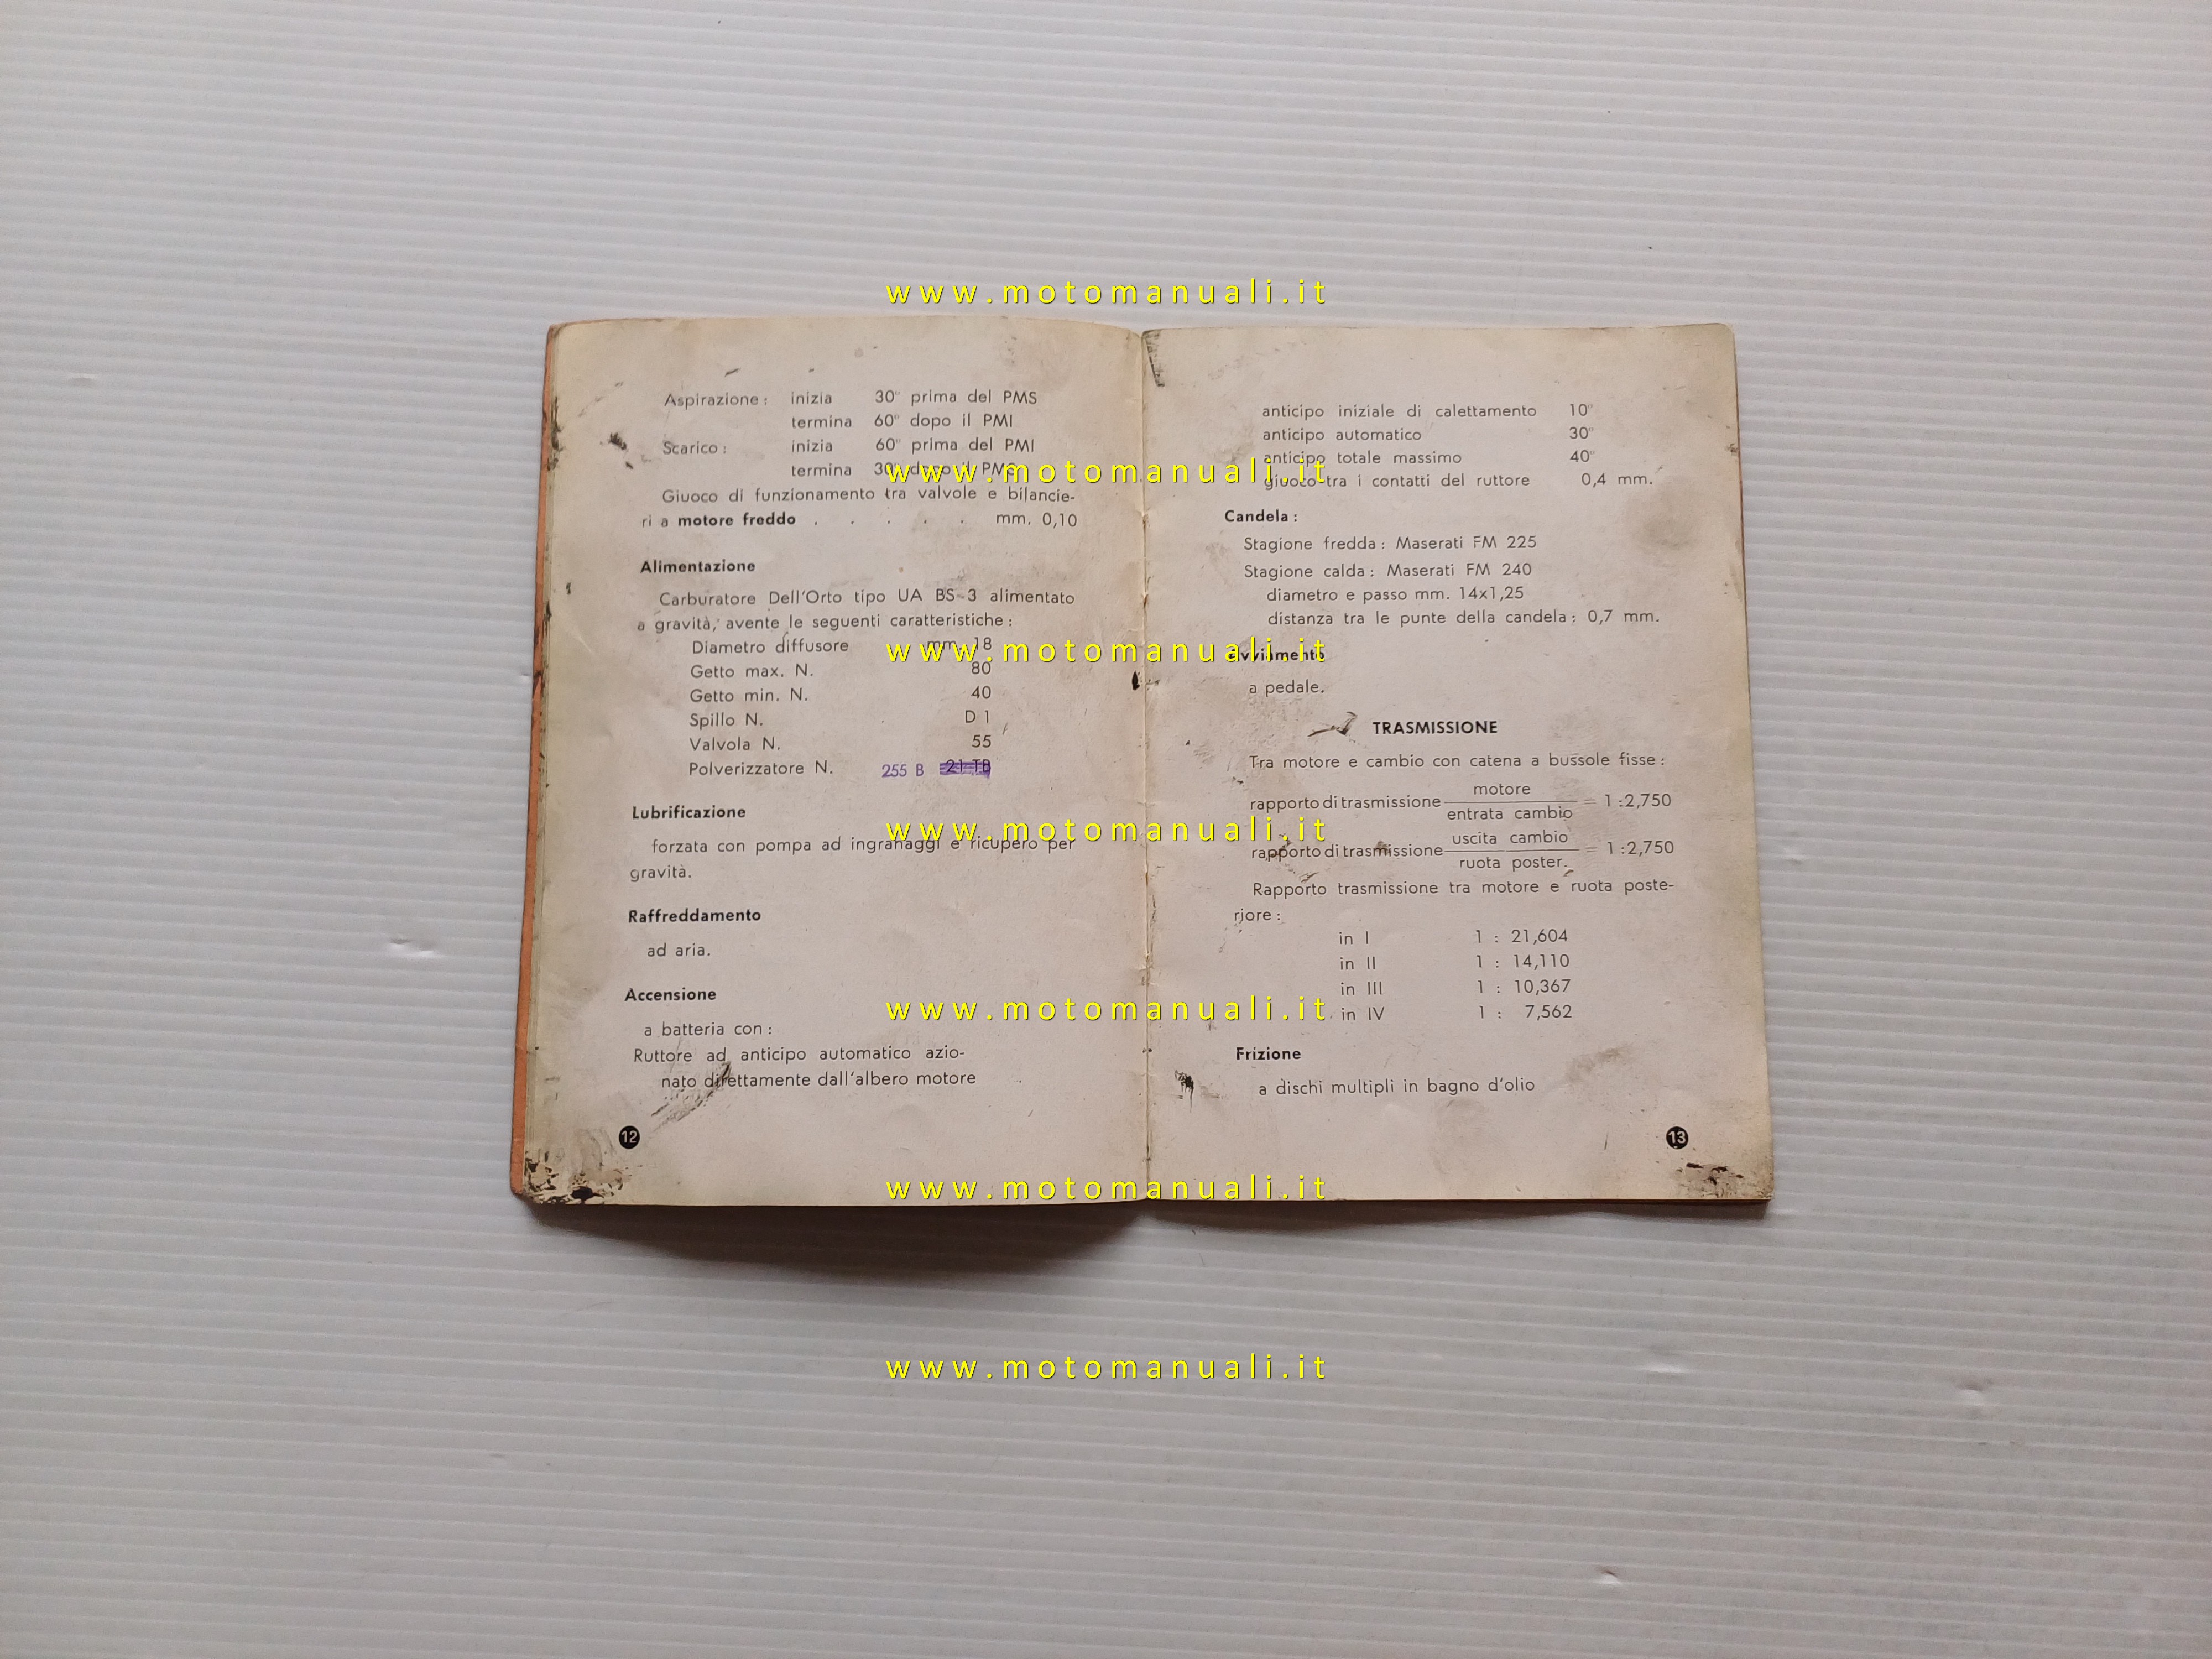 www.motomanuali.it
Aspirazione: inizia 30° prima del PMS
termina 60° dopo il PMI
Scarico: inizia 60° prima del PMI
termina 30° dopo il PMS
www.motomanuali.it
Giuoco di funzionamento tra valvole e bilancie-
ri a motore freddo . . . . . mm. 0,10
Alimentazione
Carburatore Dell'Orto tipo UA BS-3 alimentato
a gravità, avente le seguenti caratteristiche:
Diametro diffusore mm. 18
www.motomanuali.it
Getto max. N. 80
Getto min. N. 40
Spillo N. D 1
Valvola N. 55
Polverizzatore N. 255 B 21 TB
Lubrificazione
www.motomanuali.it
forzata con pompa ad ingranaggi e ricupero per
gravità.
Raffreddamento
ad aria.
Accensione
www.motomanuali.it
a batteria con:
Ruttore ad anticipo automatico azio-
nato direttamente dall'albero motore
12
www.motomanuali.it
anticipo iniziale di calettamento 10°
anticipo automatico 30°
anticipo totale massimo 40°
giuoco tra i contatti del ruttore 0,4 mm.
Candela:
Stagione fredda: Maserati FM 225
Stagione calda: Maserati FM 240
diametro e passo mm. 14x1,25
distanza tra le punte della candela: 0,7 mm.
Avviamento
a pedale.
TRASMISSIONE
Tra motore e cambio con catena a bussole fisse:
motore
rapporto di trasmissione = 1:2,750
entrata cambio
uscita cambio
rapporto di trasmissione = 1:2,750
ruota poster.
Rapporto trasmissione tra motore e ruota poste-
riore:
in I 1 : 21,604
in II 1 : 14,110
in III 1 : 10,367
in IV 1 : 7,562
Frizione
a dischi multipli in bagno d'olio
13
www.motomanuali.it